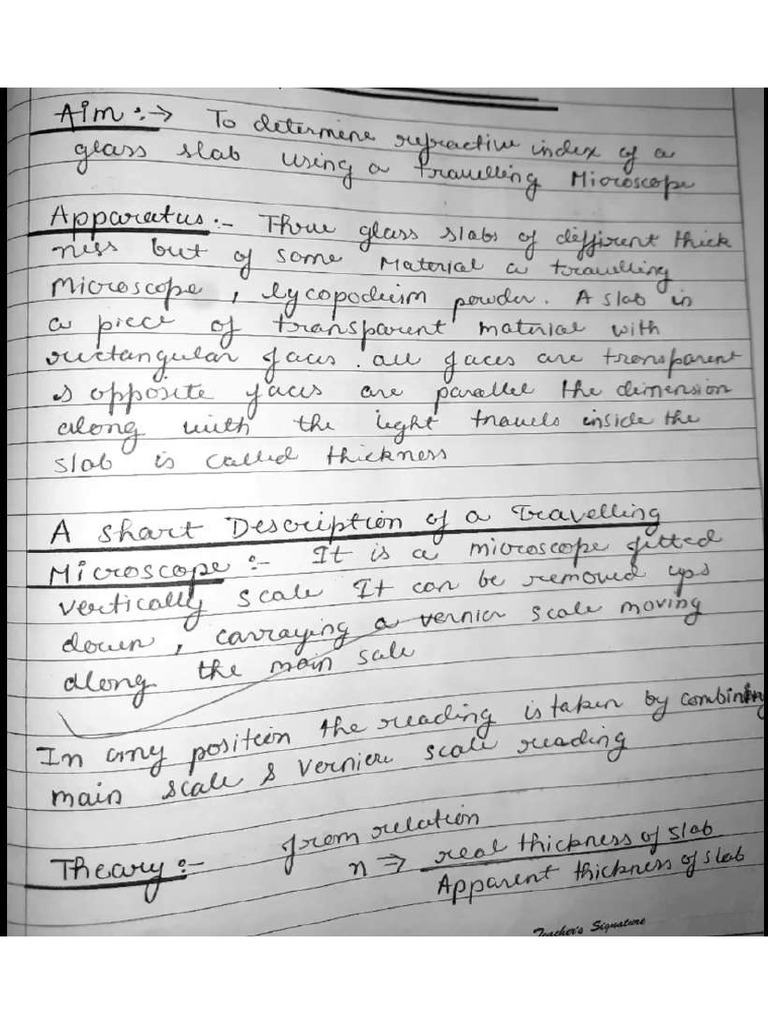 Aim:-> To determine refractive index of a
glass slab using a travelling Microscope
Apparatus:- Three glass slabs of diffirent thick
ness but of some Material a travelling
Microscope, lycopodium powder. A slab is
a piece of transparent material with
rectangular faces. all faces are transparent
& opposite faces are parallel the dimension
along with the light travels inside the
slab is called thickness
A Short Description of a Travelling
Microscope:- It is a microscope fitted
vertically scale It can be removed up&
down, carraying a vernier scale moving
along the main sale
In any position the reading is taken by combining
main scale & vernier scale reading
Theary:- from relation
n => real thickness of slab
Apparent thickness of slab
Teacher's Signature